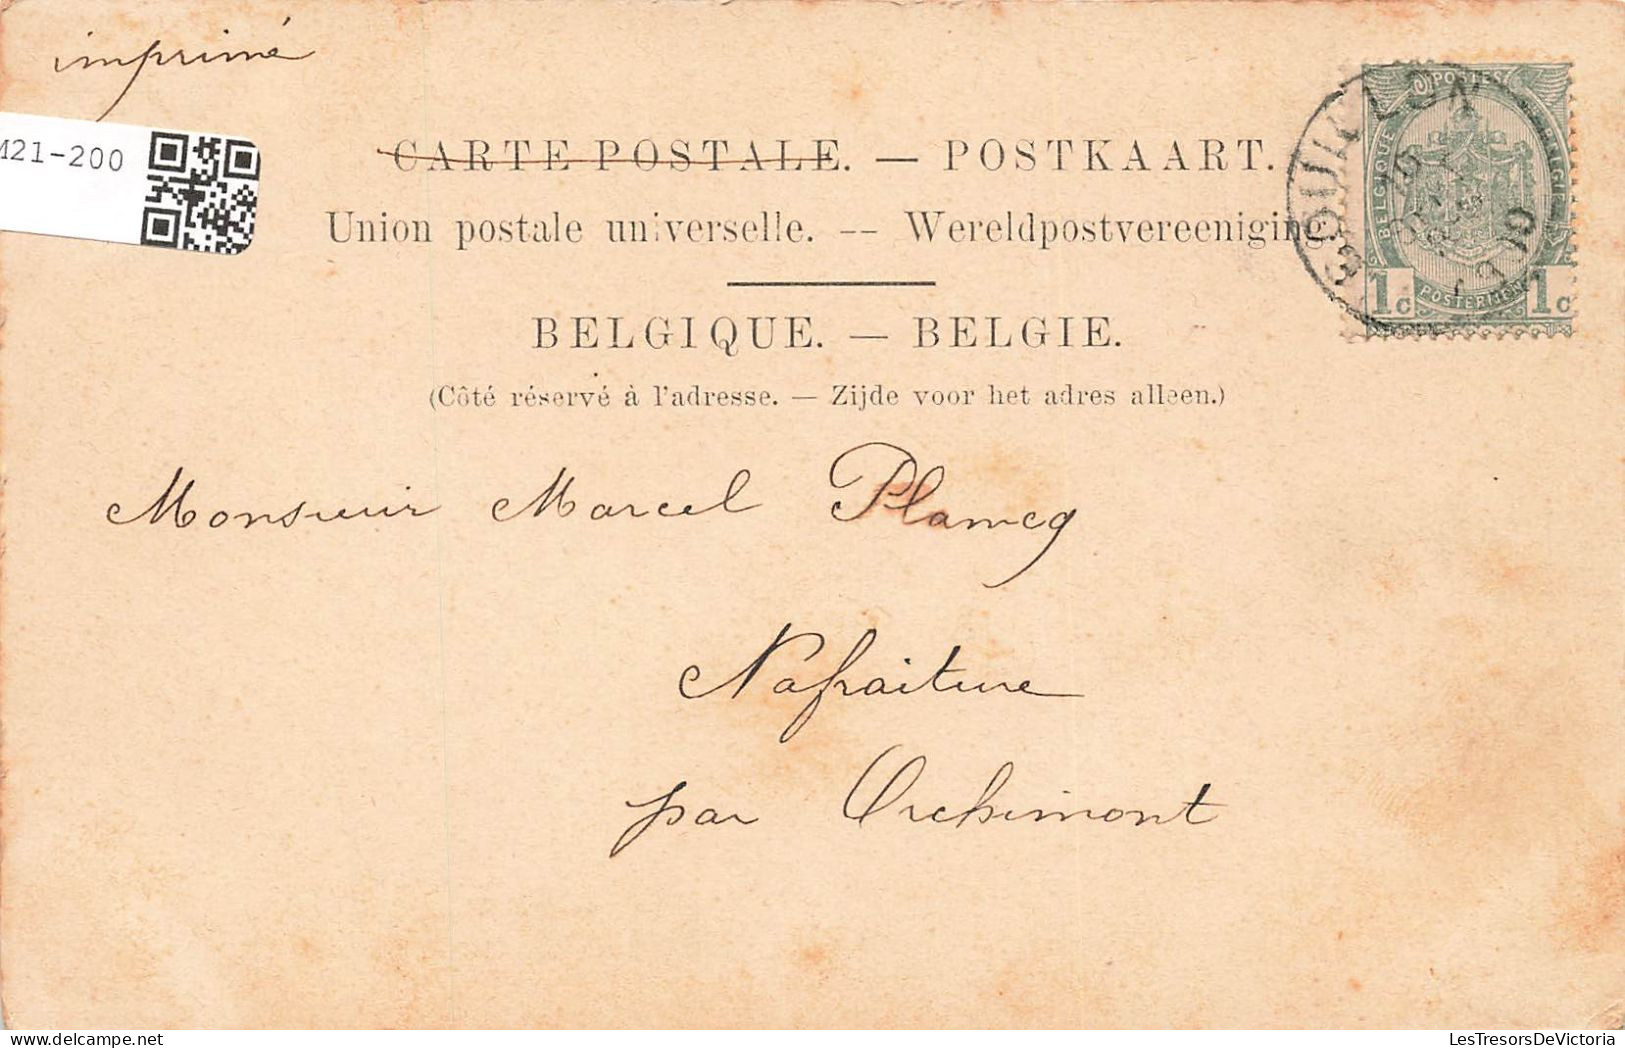 imprimé
M21-200
CARTE POSTALE. — POSTKAART.
Union postale universelle. -- Wereldpostvereeniging
BELGIQUE. — BELGIE.
(Côté réservé à l'adresse. — Zijde voor het adres alleen.)
POSTES
BELGIQUE
BELGIE
1c POSTERIJEN 1c
Monsieur Marcel Plamcq
Nafraiture
par Orchimont
LesTresorsDeVictoria